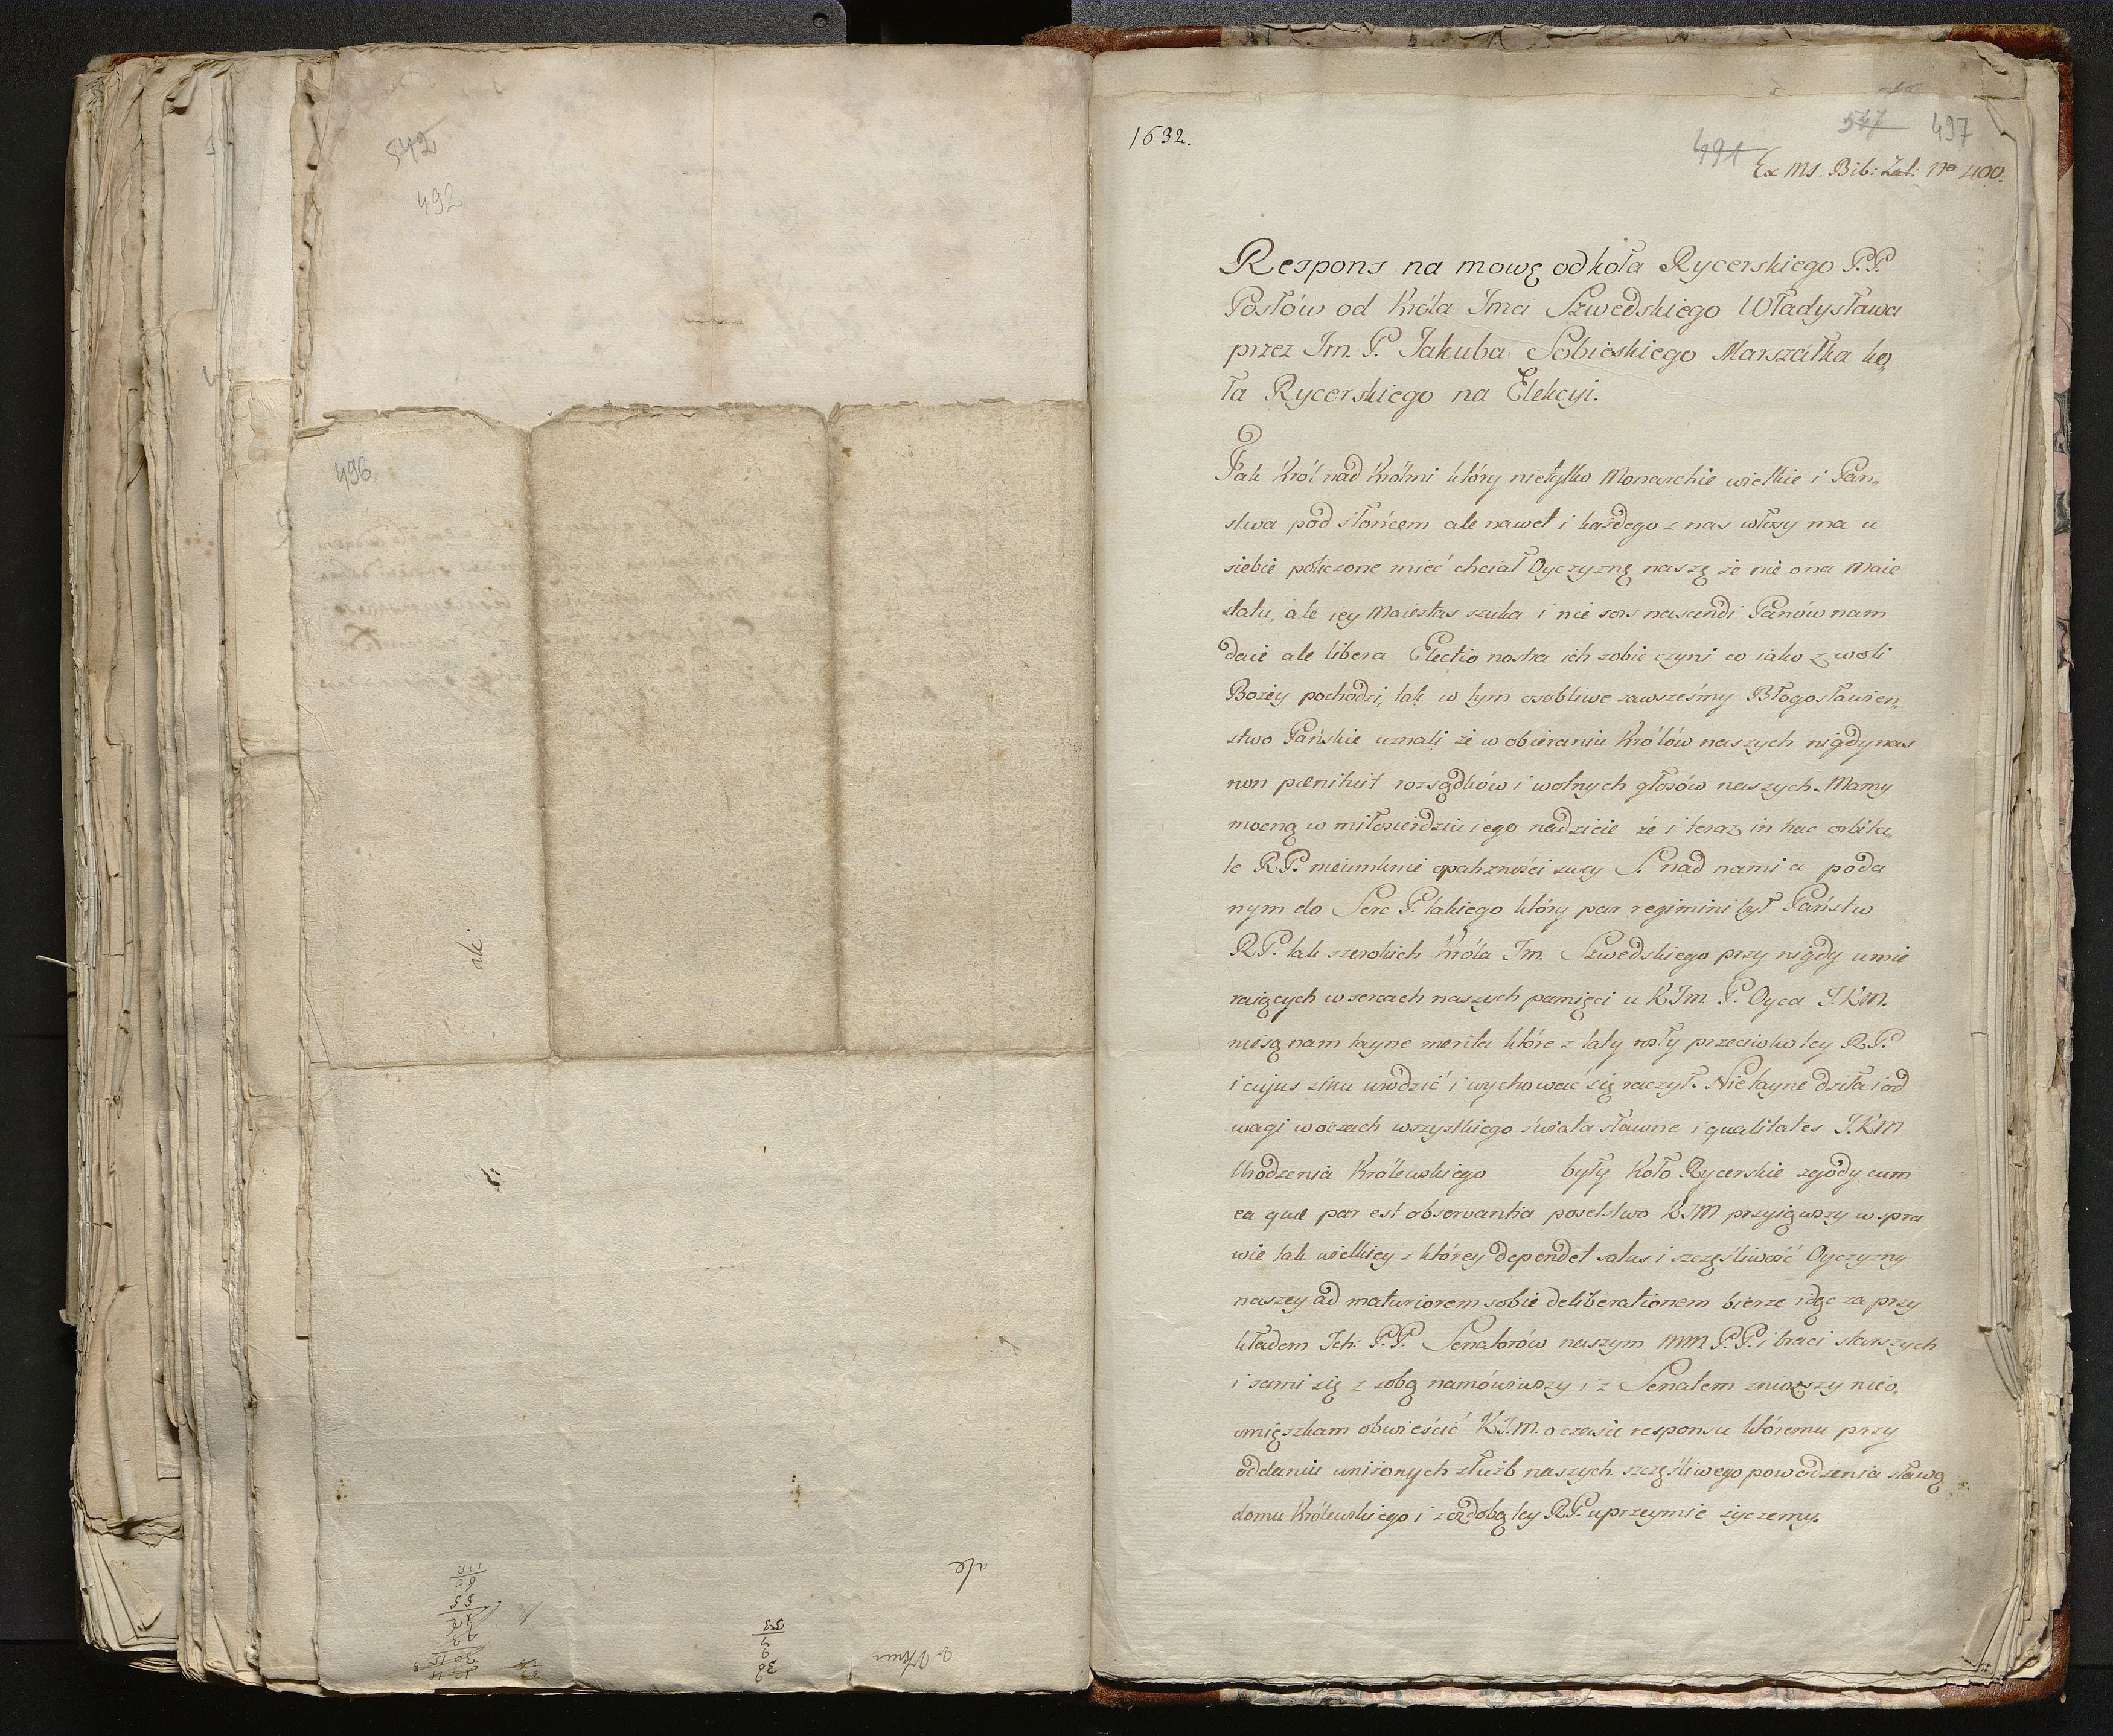 542
492
496
ale.
ale
1632.
491
547
497
Ex Ms. Bib: Zał: No 400.
Respons na mowę od koła Rycerskiego P.P.
Posłów od Króla Jmci Szwedskiego Władysława
przez Jm. P. Jakuba Sobieskiego Marszałka ko„
ła Rycerskiego na Elekcyi.
Jak Król nad Królmi który nietylko Monarchie wielkie i Pan„
stwa pod słońcem ale nawet i każdego z nas włosy ma u
siebie policzone mieć chciał Oyczyznę naszę że nie ona Maie
statu, ale iey Maiestas szuka i nie sors nascendi Panów nam
daie ale libera Electio nostra ich sobie czyni co iako z woli
Bożey pochodzi, tak w tym osobliwe zawsześmy Błogosławien„
stwo Pańskie uznali że w obieraniu Królów naszych nigdy nas
non pœnituit rozsądków i wolnych głosów naszych. Mamy
mocną w miłosierdziu iego nadzieie że i teraz in hac orbita„
te RP. nieumknie opatrzności swey S. nad nami a poda
nym do Serc P. takiego który par regimini był Państw
RP. tak szerokich Króla Jm. Szwedskiego przy nigdy umie
raiących w sercach naszych pamięci u KJm. P. Oyca J.KM.
niesą nam tayne merita które z laty rosły przeciwko tey R.P.
i cujus sinu urodzić i wychować się raczył. Nie tayne dziła i od
wagi w oczach wszystkiego świata sławne i qualitates J.KM
Urodzenia Królewskiego były Koło Rycerskie zgody cum
ea quæ par est observantia poselstwo KJM przyiąwszy w spra
wie tak wielkiey z którey dependet salus i szczęśliwość Oyczyzny
naszey ad maturiorem sobie deliberationem bierze idąc za przy
kładem Ich: P.P. Senatorów naszym MM. P.P. i braci starszych
i sami się z sobą namówiwszy i z Senatem zniozszy nieo„
mięszkam obwieścić KJ.M. o czasie responsu któremu przy
oddaniu uniżonych służb naszych szczęśliwego powodzenia sławą
domu Królewskiego i z ozdobą tey RP. uprzeymie życzemy.